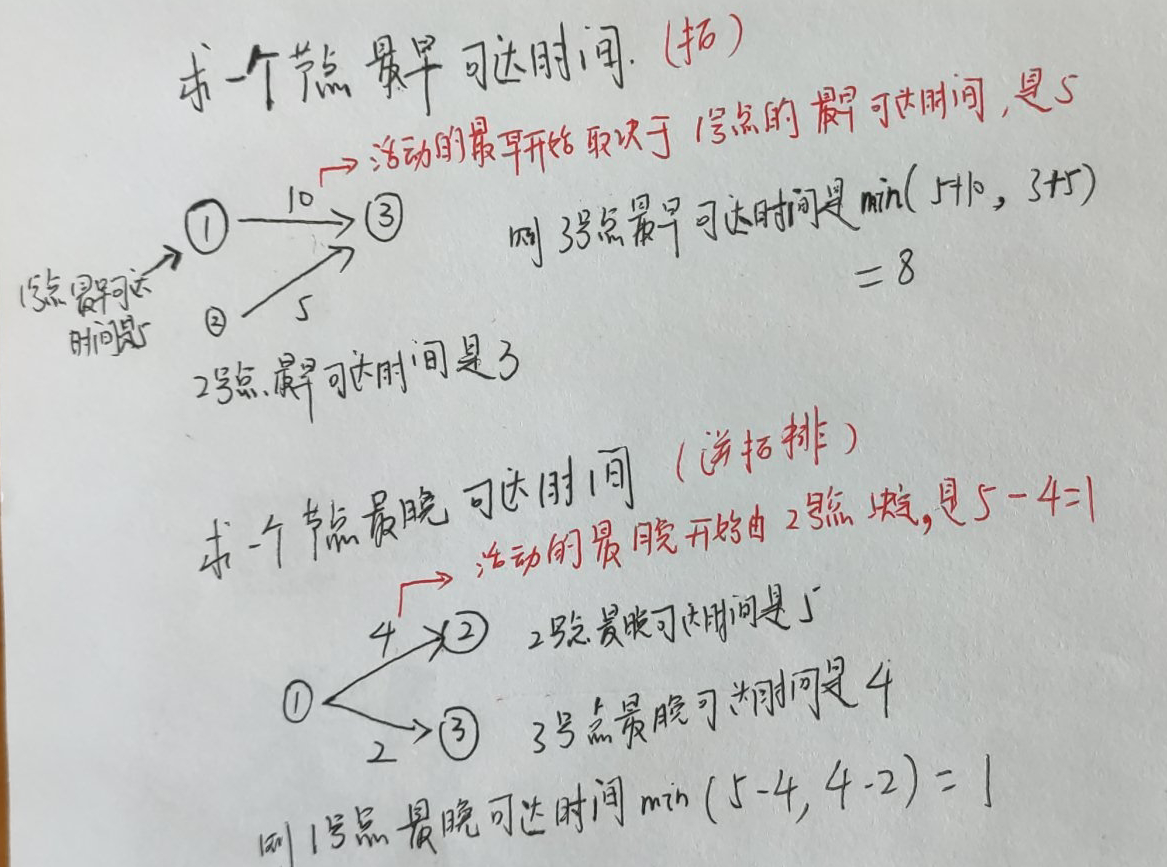 求一个节点最早可达时间.(拓)
活动的最早开始取决于1号点的最早可达时间,是5
① 10 ③
则3号点最早可达时间是min(5+10, 3+5)
= 8
1号点最早可达
时间是5
② 5
2号点最早可达时间是3
求一个节点最晚可达时间 (逆拓排)
活动的最晚开始由2号点决定,是5-4=1
4 ② 2号点最晚可达时间是5
①
2 ③ 3号点最晚可达时间是4
则1号点最晚可达时间min(5-4, 4-2) = 1